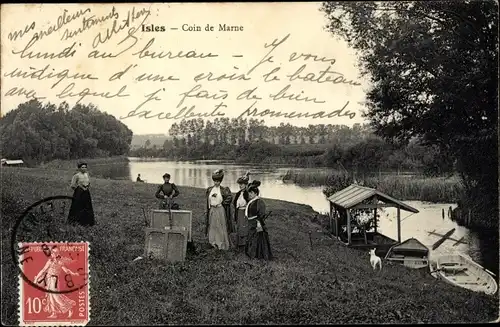 Isles — Coin de Marne
mes meilleurs
sentiments
lundi au bureau
Je vous
indique d'une croix le bateau
avec lequel je fais de bien
excellentes promenades
10c
BLY